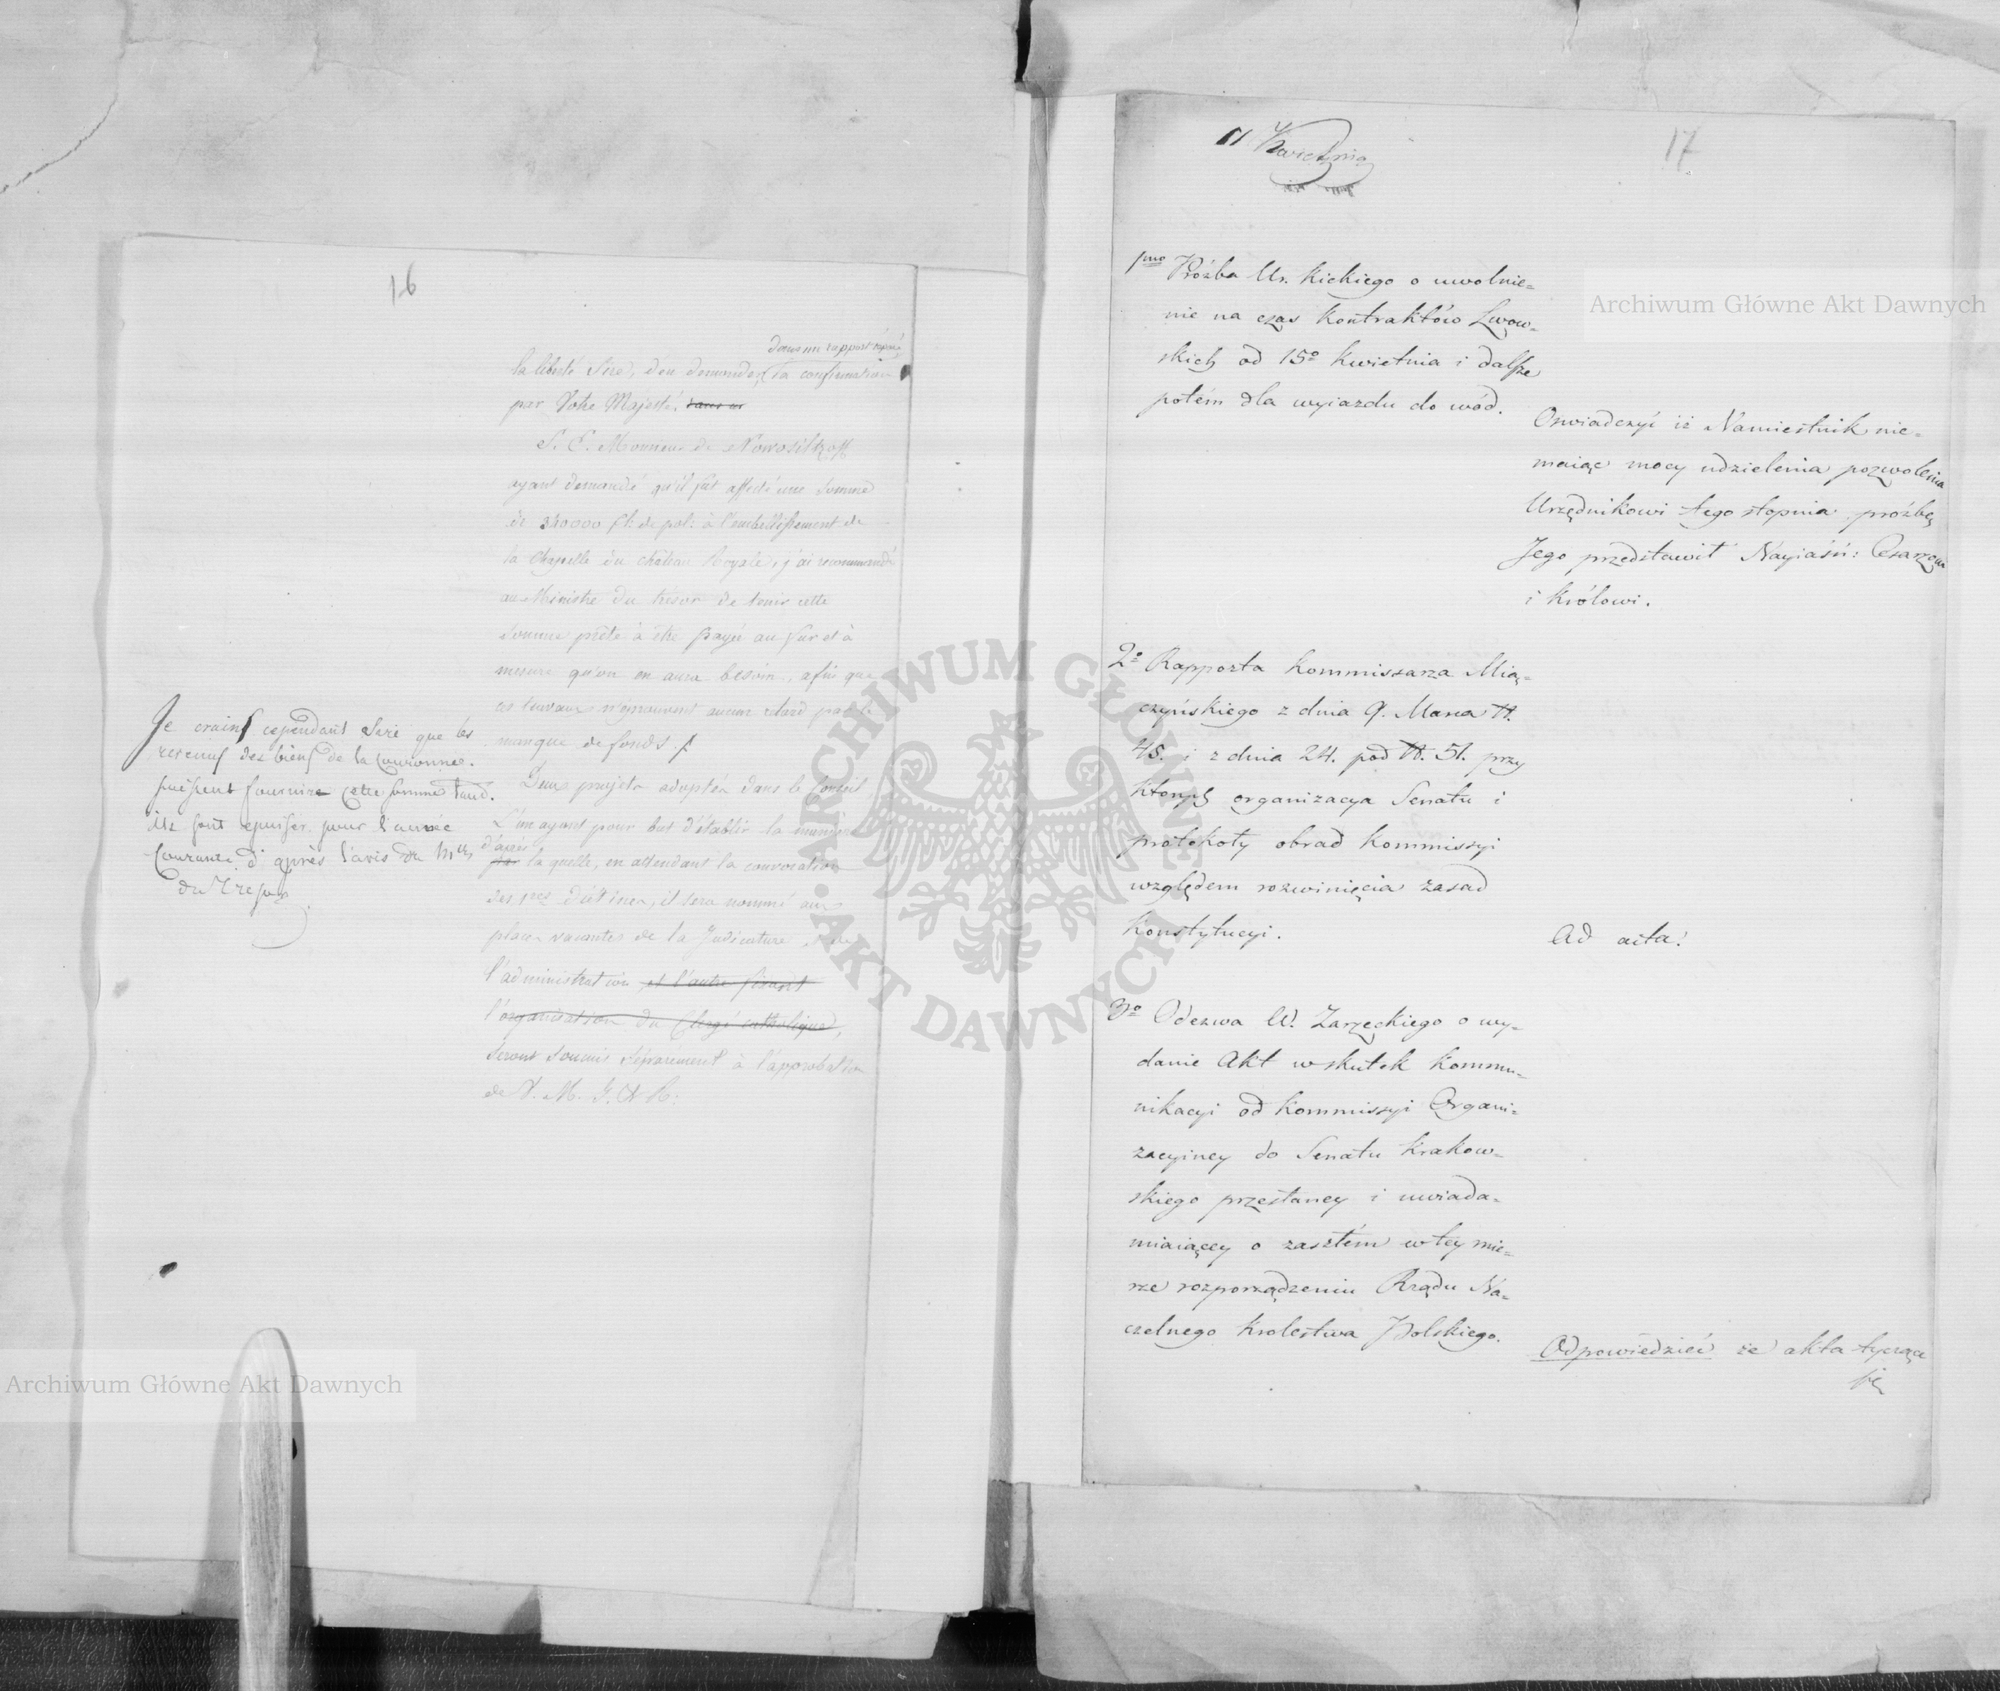 16
dans un rapport séparé
la liberté Sire, d'en demander la confirmation
par Votre Majesté,
S. E. Monsieur de Nowosiltzoff
ayant demandé qu'il fût affecté une somme
de 340000 fl: de pol: à l'embellissement de
la Chapelle du château Royale, j'ai recommandé
au Ministre du trésor de tenir cette
somme prête à être payée au fur et à
mesure qu'on en aura besoin, afin que
ces travaux n'éprouvent aucun retard par le
manque de fonds.
Je crains cependant Sire que les
revenus des biens de la Couronne
puissent fournir cette somme
ils sont épuisés pour l'année
Courante d'après l'avis du
du Tresor
Deux projets adoptés dans le Conseil,
L'un ayant pour but d'établir la manière
d'après
la quelle, en attendant la convocation
des d'iétines, il sera nommé aux
places vacantes de la Judicature et de
l'administration et l'autre fixant
l'organisation du Clergé catholique,
seront soumis séparément à l'approbation
de V. M. I. et R:
11 Kwietnia
17
1mo Proźba Ur. Kickiego o uwolnie=
nie na czas Kontraktów Lwow=
skich od 15o Kwietnia i dalsze
potém dla wyiazdu do wód.
Oświadczyć iż Namiestnik nie=
maiąc mocy udzielenia pozwolenia
Urzędnikowi tego stopnia, proźbę
Jego przedstawił Nayiaśń: Cesarzowi
i Królowi.
2o Rapporta Kommissarza Mią=
czyńskiego z dnia 9. Marca N.
48. i z dnia 24. pod N. 51. przy
których organizacya Senatu i
protokoły obrad Kommissyi
względem rozwinięcia zasad
Konstytucyi.
Ad acta!
3o Odezwa U. Zarzeckiego o wy=
danie Akt wskutek Kommu=
nikacyi od Kommissyi Organi=
zacyiney do Senatu Krakow=
skiego przesłaney i uwiada=
miaiącey o zaszłém w tey mie=
rze rozporządzeniu Rządu Na=
czelnego Krolestwa Polskiego.
Odpowiedzieć że akta tyczące
się
Archiwum Główne Akt Dawnych
Archiwum Główne Akt Dawnych
ARCHIWUM GŁÓWNE AKT DAWNYCH